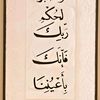 لِحُكْمِ
رَبِّكَ
فَإِنَّكَ
بِأَعْيُنِنَا